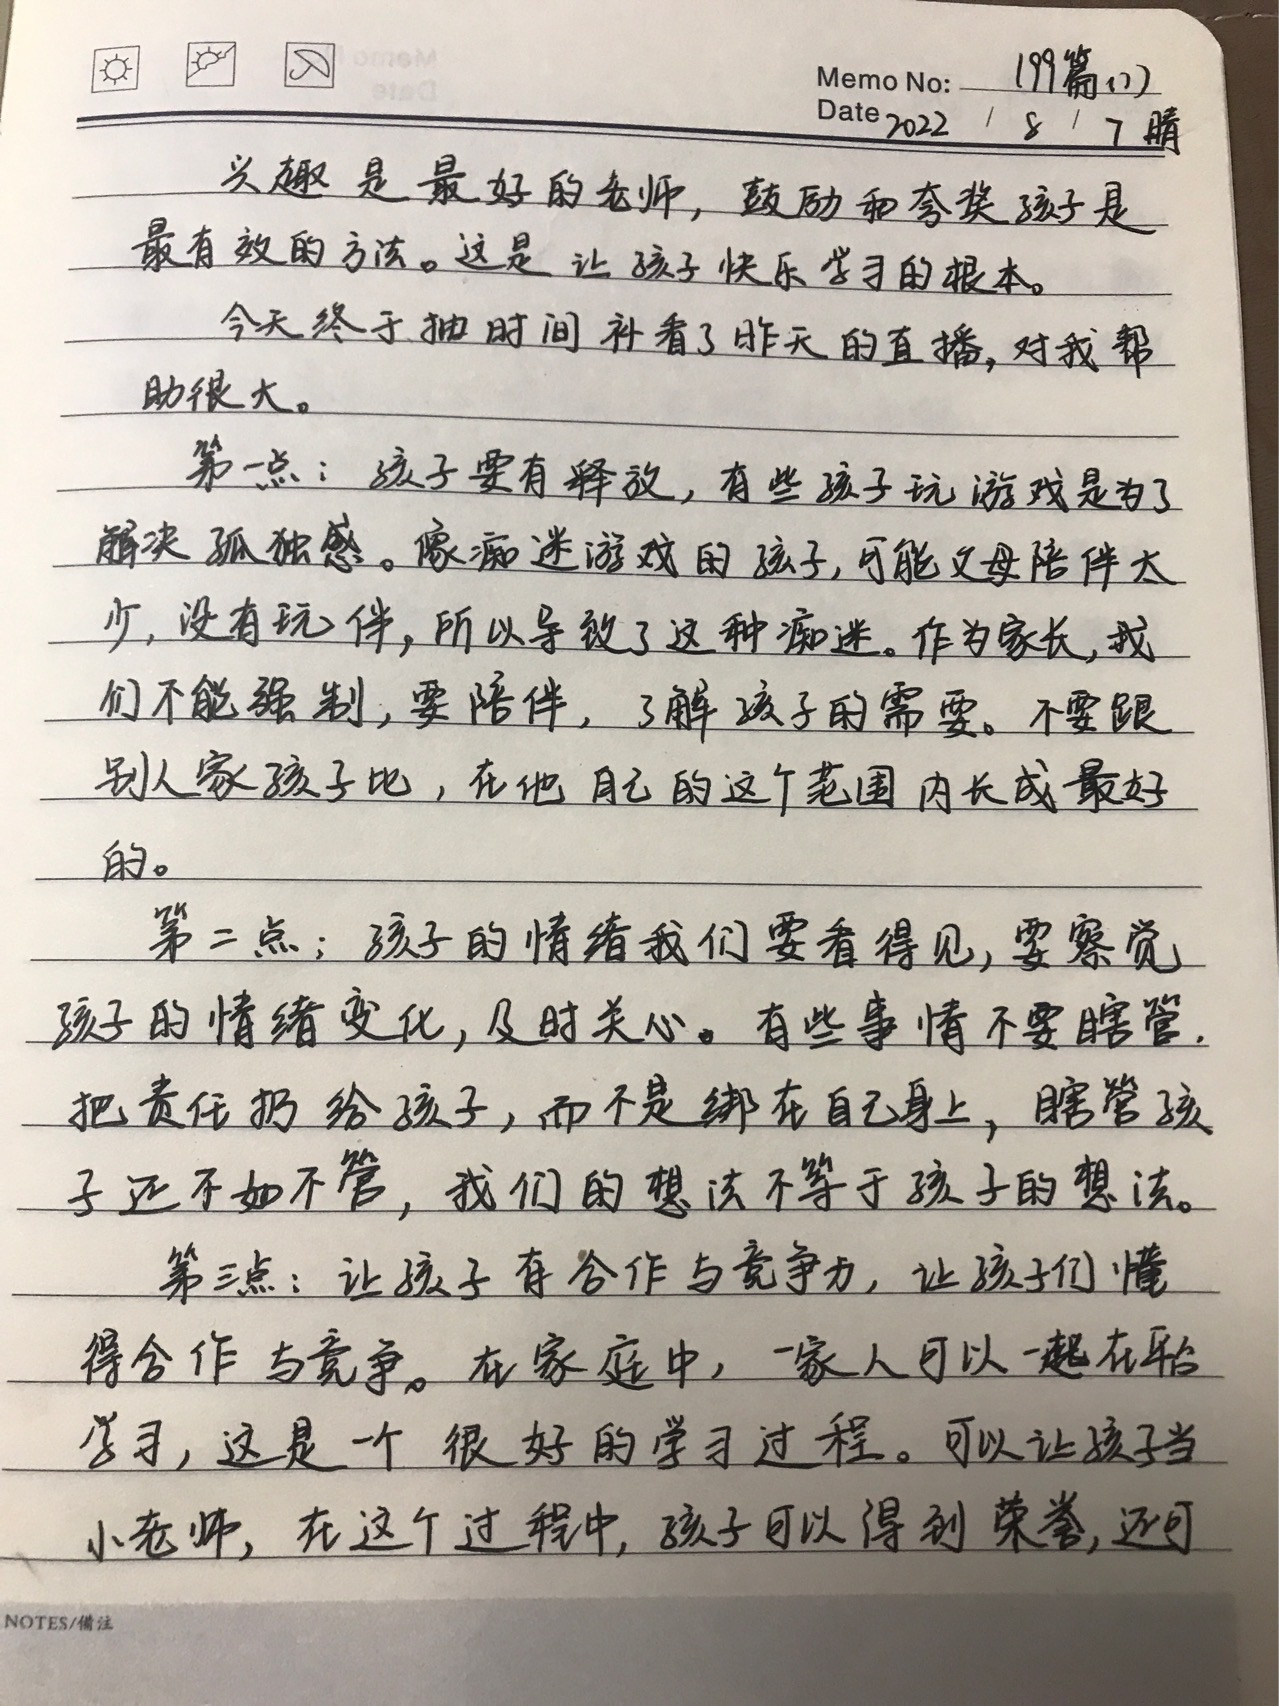 Memo No: 199篇(1)
Date 2022 / 8 / 7 晴
兴趣是最好的老师，鼓励和夸奖孩子是
最有效的方法。这是让孩子快乐学习的根本。
今天终于抽时间补看了昨天的直播，对我帮
助很大。
第一点：孩子要有释放，有些孩子玩游戏是为了
解决孤独感。像痴迷游戏的孩子，可能父母陪伴太
少，没有玩伴，所以导致了这种痴迷。作为家长，我
们不能强制，要陪伴，了解孩子的需要。不要跟
别人家孩子比，在他自己的这个范围内长成最好
的。
第二点：孩子的情绪我们要看得见，要察觉
孩子的情绪变化，及时关心。有些事情不要瞎管.
把责任扔给孩子，而不是绑在自己身上，瞎管孩
子还不如不管，我们的想法不等于孩子的想法。
第三点：让孩子有合作与竞争力，让孩子们懂
得合作与竞争。在家庭中，一家人可以一起在平台
学习，这是一个很好的学习过程。可以让孩子当
小老师，在这个过程中，孩子可以得到荣誉，还可
NOTES/備注